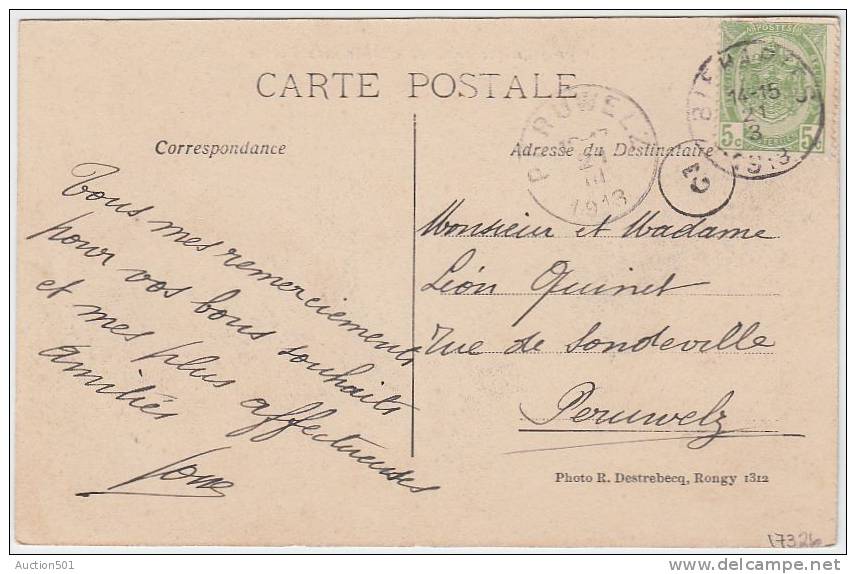 CARTE POSTALE
Correspondance
Adresse du Destinataire
POSTES
5c 5c
14-15
21
3
1913
PERUWELZ
21
III
1913
Tous mes remerciements
pour vos bons souhaits
et mes plus affectueuses
amitiés
Monsieur et Madame
Léon Quinet
rue de Sondeville
Peruwelz
Photo R. Destrebecq, Rongy 1312
17326
Auction501
delcampe.net